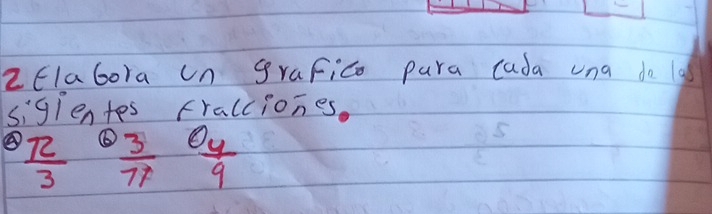 2 Elabora un grafico para cada una de las
sigientes fracciones.
a 12/3 b 3/17 c 4/9